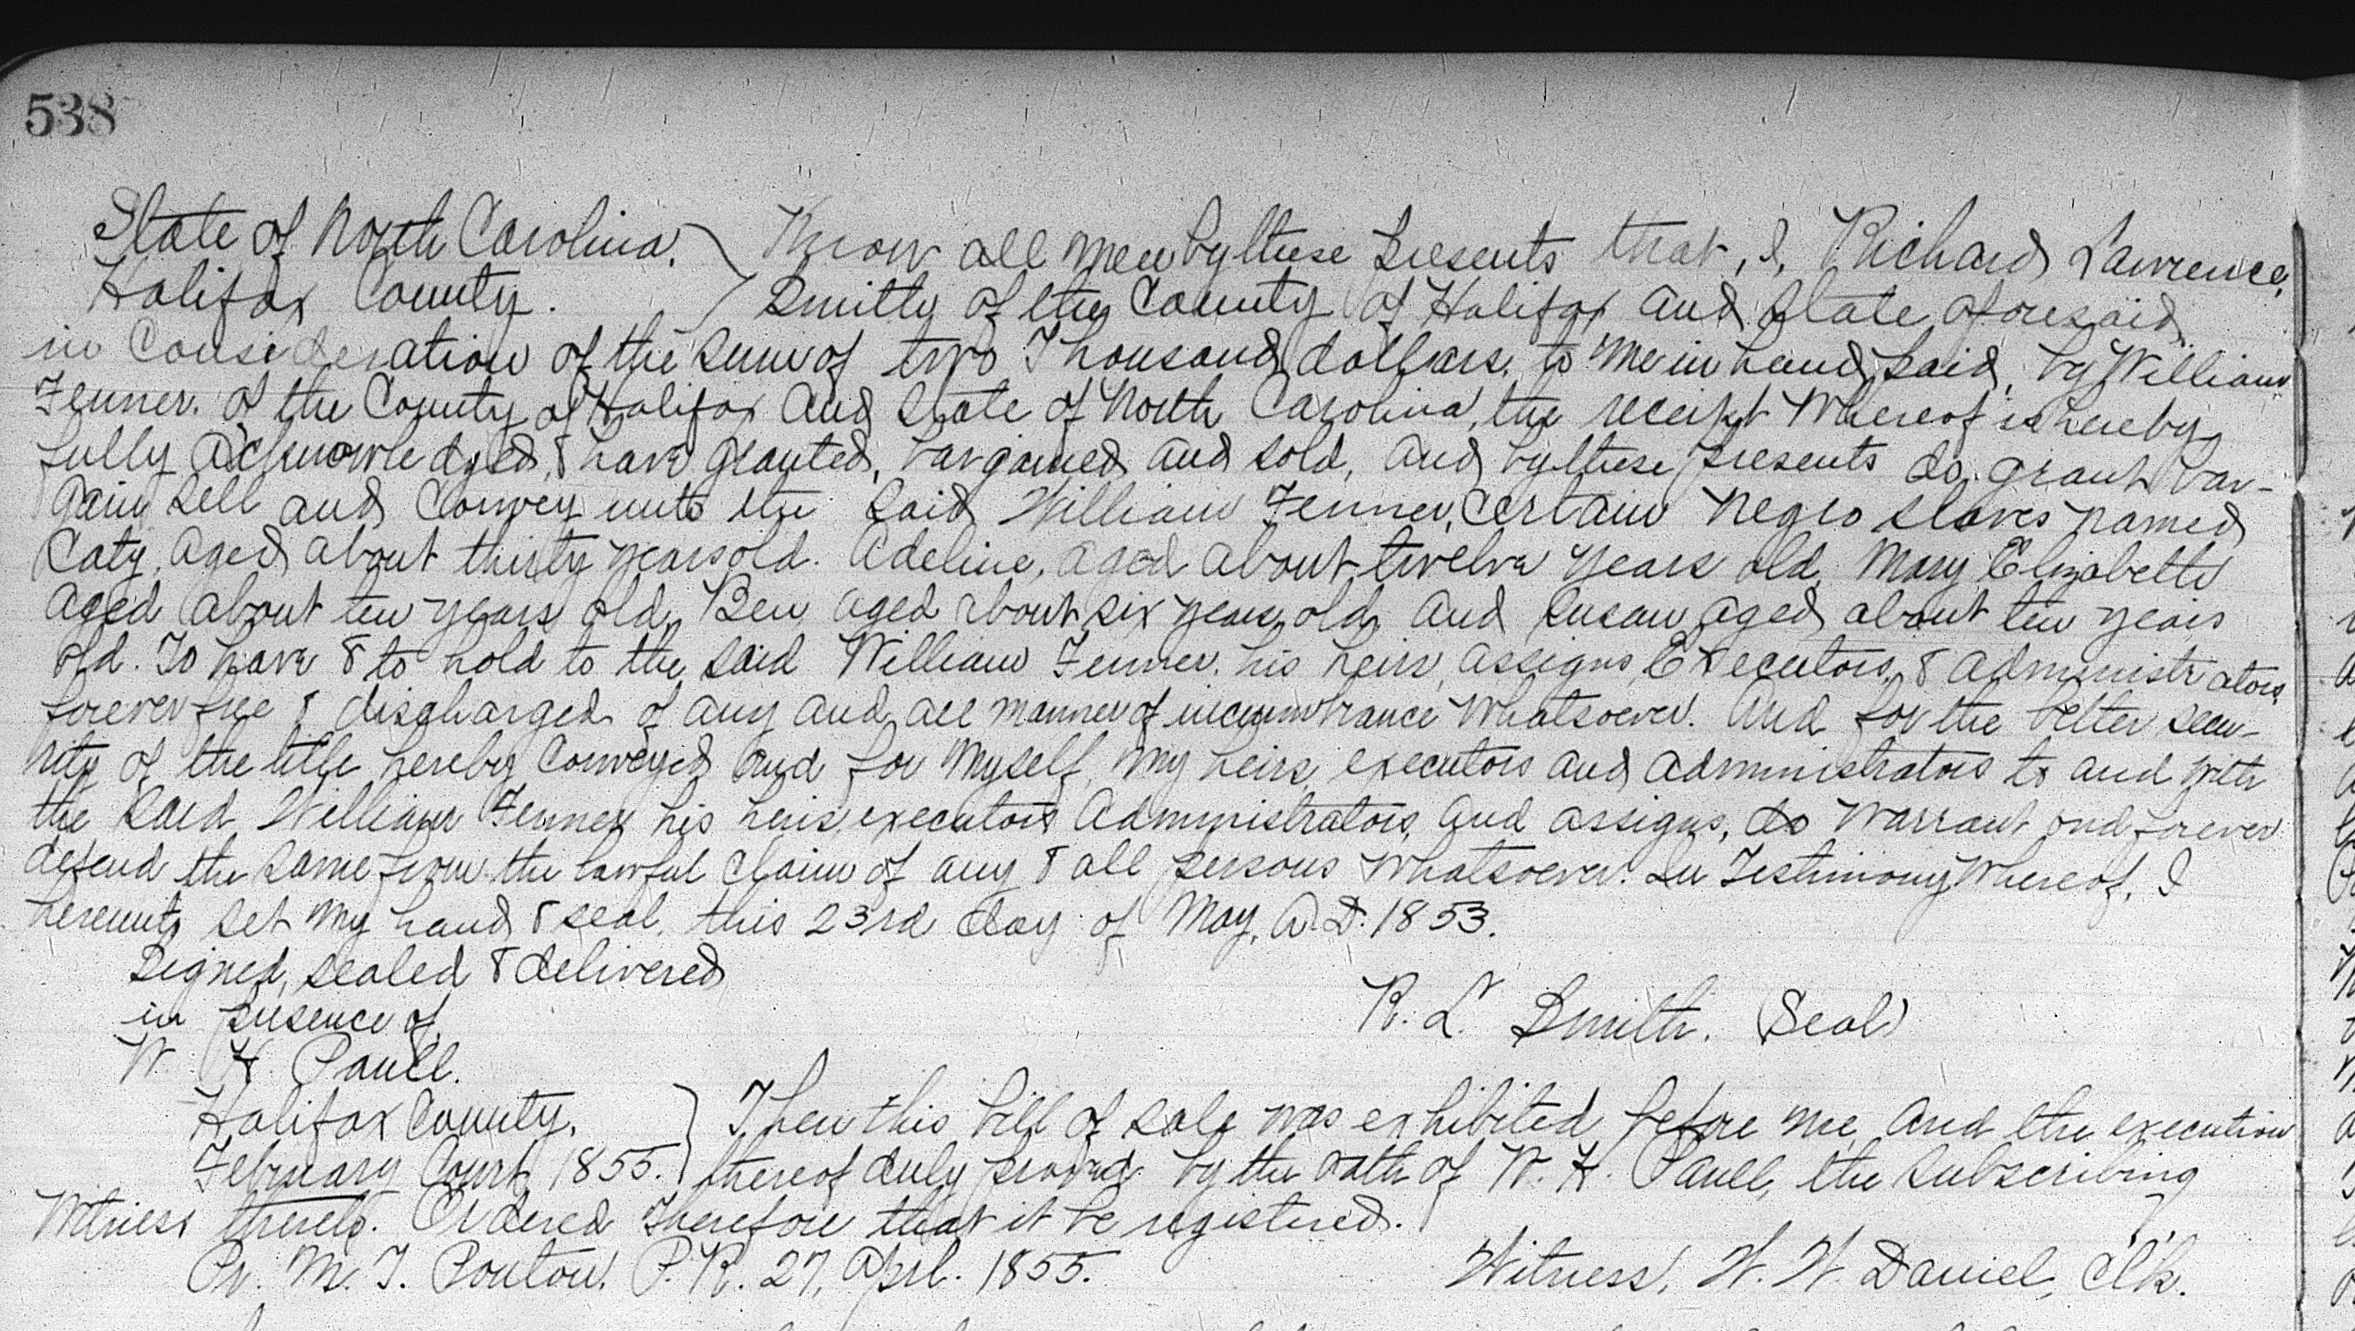 538
State of North Carolina. Know all men by these presents that, I, Richard Lawrence,
Halifax County. Smith of the County of Halifax and State aforesaid,
in Consideration of the sum of two Thousand dollars. to me in hand paid, by William
Fenner. of the County of Halifax and State of North Carolina, the receipt whereof is hereby
fully acknowledged, & have granted, bargained and sold, and by these presents do. grant bar-
gain sell and convey unto the said William Fenner, certain negro slaves named
Caty, aged about thirty years old. Adeline, aged about twelve years old, Mary Elizabeth
aged about ten years old, Ben aged about six years old, and Susan aged about ten years
old. To have & to hold to the said William Fenner. his heirs, assigns, Executors, & administrators,
forever free & discharged of any and all manner of incumbrance whatsoever. And for the better secu-
rity of the title hereby conveyed and for myself, my heirs, executors and administrators to and with
the said William Fenner his heirs, executors administrators, and assigns, do warrant and forever
defend the same from the lawful claim of any & all persons whatsoever. In Testimony whereof, I
hereunto set my hand & seal, this 23rd day of May, A.D. 1853.
Signed, sealed & delivered
in presence of R. L. Smith. (Seal)
W. H. Paull.
Halifax County. Then this bill of sale was exhibited before me, and the execution
February Court, 1855. thereof duly proved by the oath of W. H. Paull, the subscribing
Witness thereto. Ordered therefore that it be registered.
Pr. M. T. Ponton. P.R. 27, Aprl. 1855. Witness, W. W. Daniel, Clk.